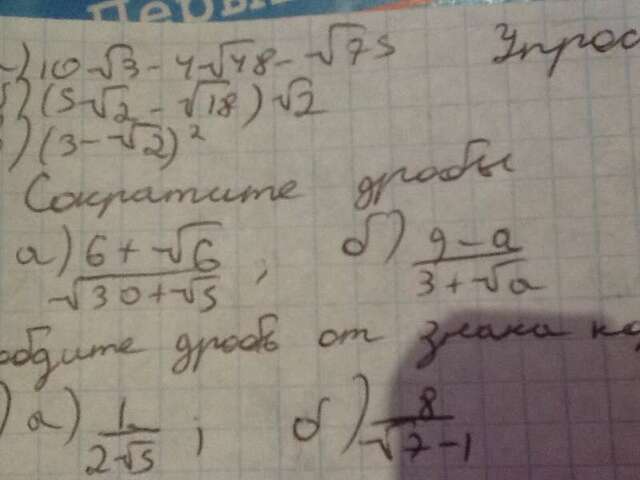 Первы
а) 10√3 - 4√48 - √75 Упрос
б) (5√2 - √18) √2
в) (3 - √2)²
Сократите дробы
а) (6 + √6)/(√30 + √5) ; б) (9 - a)/(3 + √a)
ободите дробь от знака ко
) а) 1/(2√5) ; б) 8/(√7 - 1)